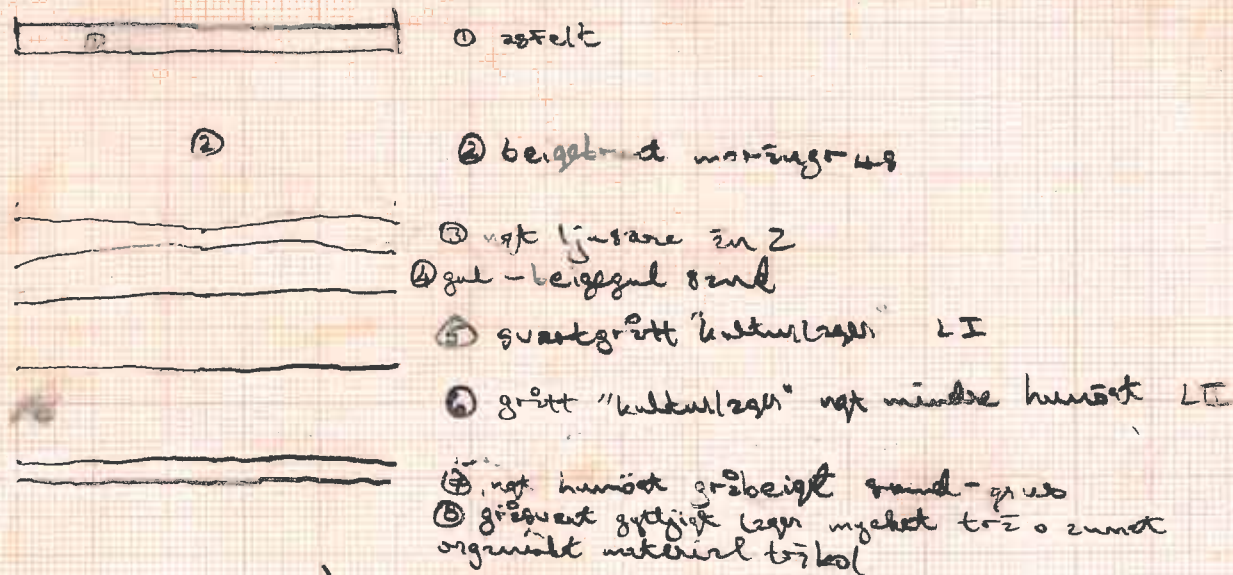 ① asfalt
①
②
② beigebrunt moràngrus
③ ngt ljusare än 2
④ gul - beigegul sand
⑤ svartgrått "kulturlager" LI
⑥ grått "kulturlager" ngt mindre humöst LII
⑦ ngt humöst gråbeigt sand-grus
⑧ gråsvart gyttjigt lager mycket trä o annat
organiskt material träkol